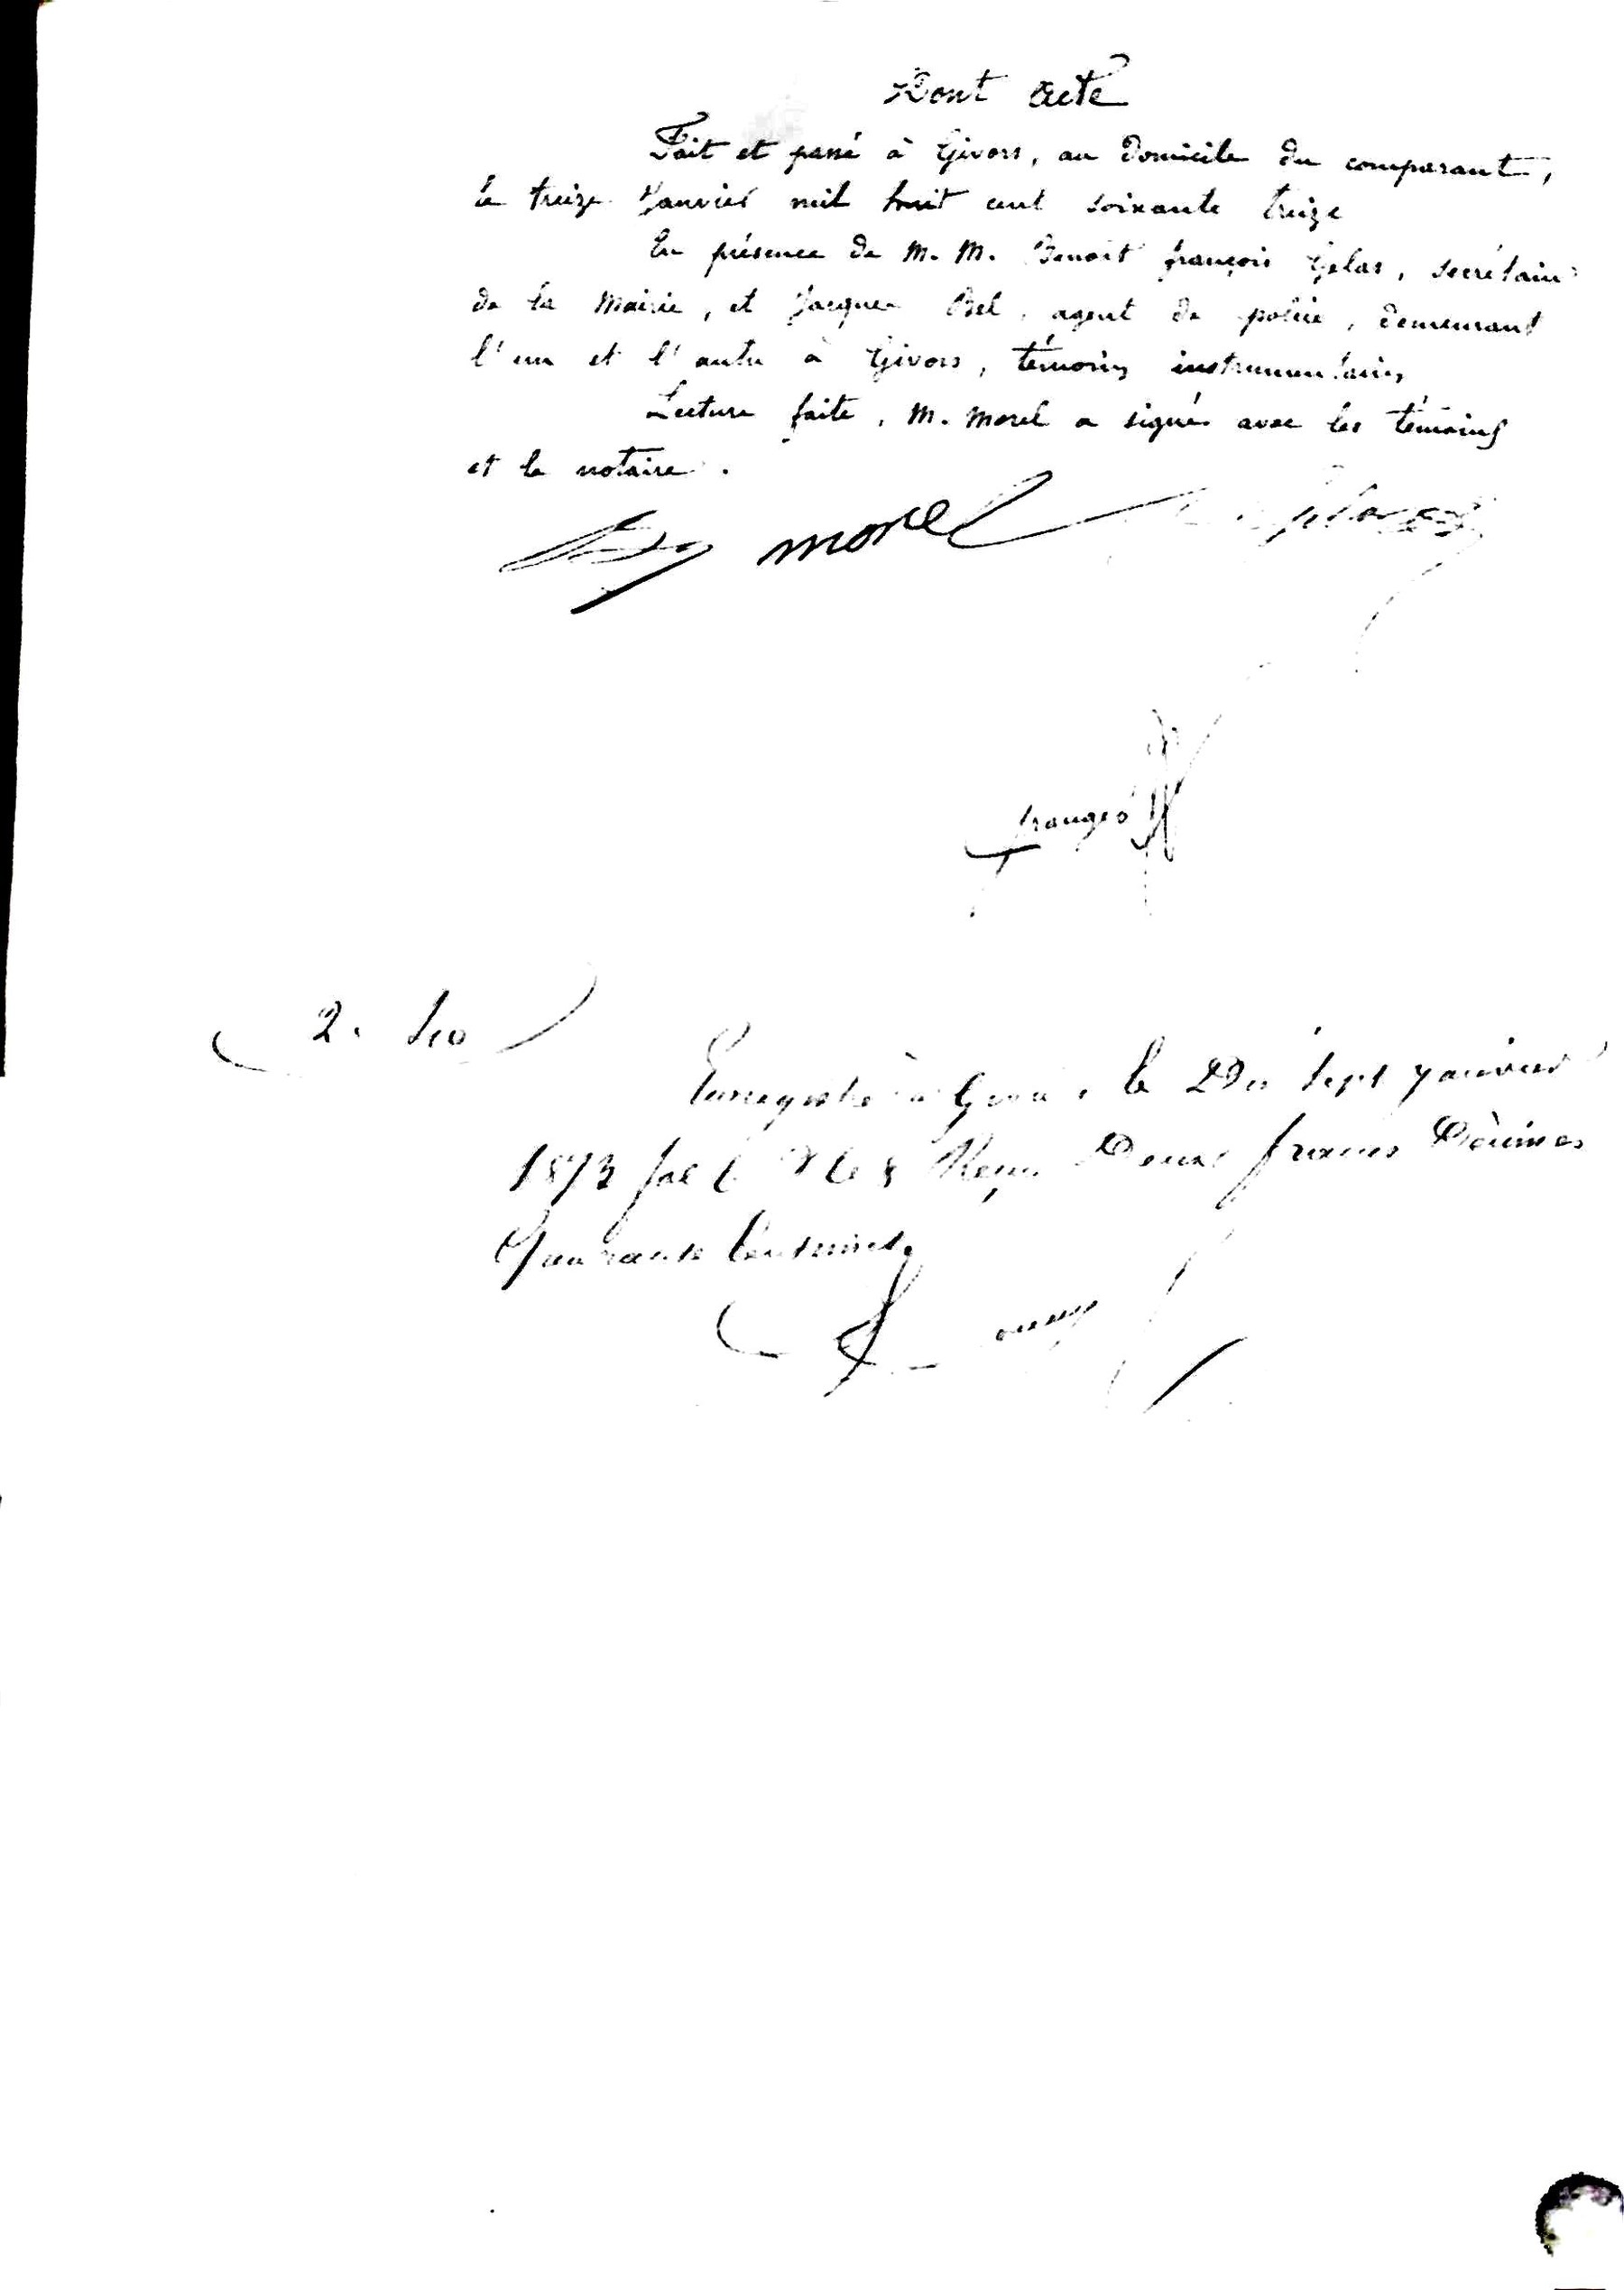 Dont Acte
Fait et passé à Givors, au domicile du comparant,
le treize Janvier mil huit cent soixante treize
En présence de M. M. Benoit françois Gelas, secrétaire
de la Mairie, et Jacques Bel, agent de police, demeurant
l'un et l'autre à Givors, témoins instrumentaires
Lecture faite, M. Morel a signé avec les témoins
et le notaire.
morel
2.40
Enregistré à Givors, le Dix sept janvier
1873 Reçu Deux francs Décimes
Quarante Centimes